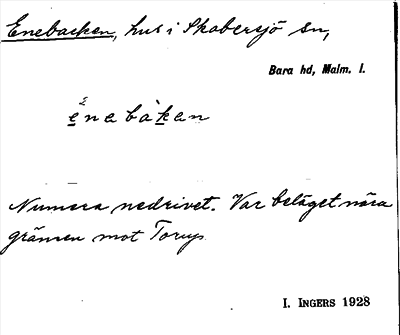 Enebacken, hus i Skabersjö sn,
Bara hd, Malm. l.
ènebàkan
Numera nedrivet. Var beläget nära
gränsen mot Torup
I. INGERS 1928